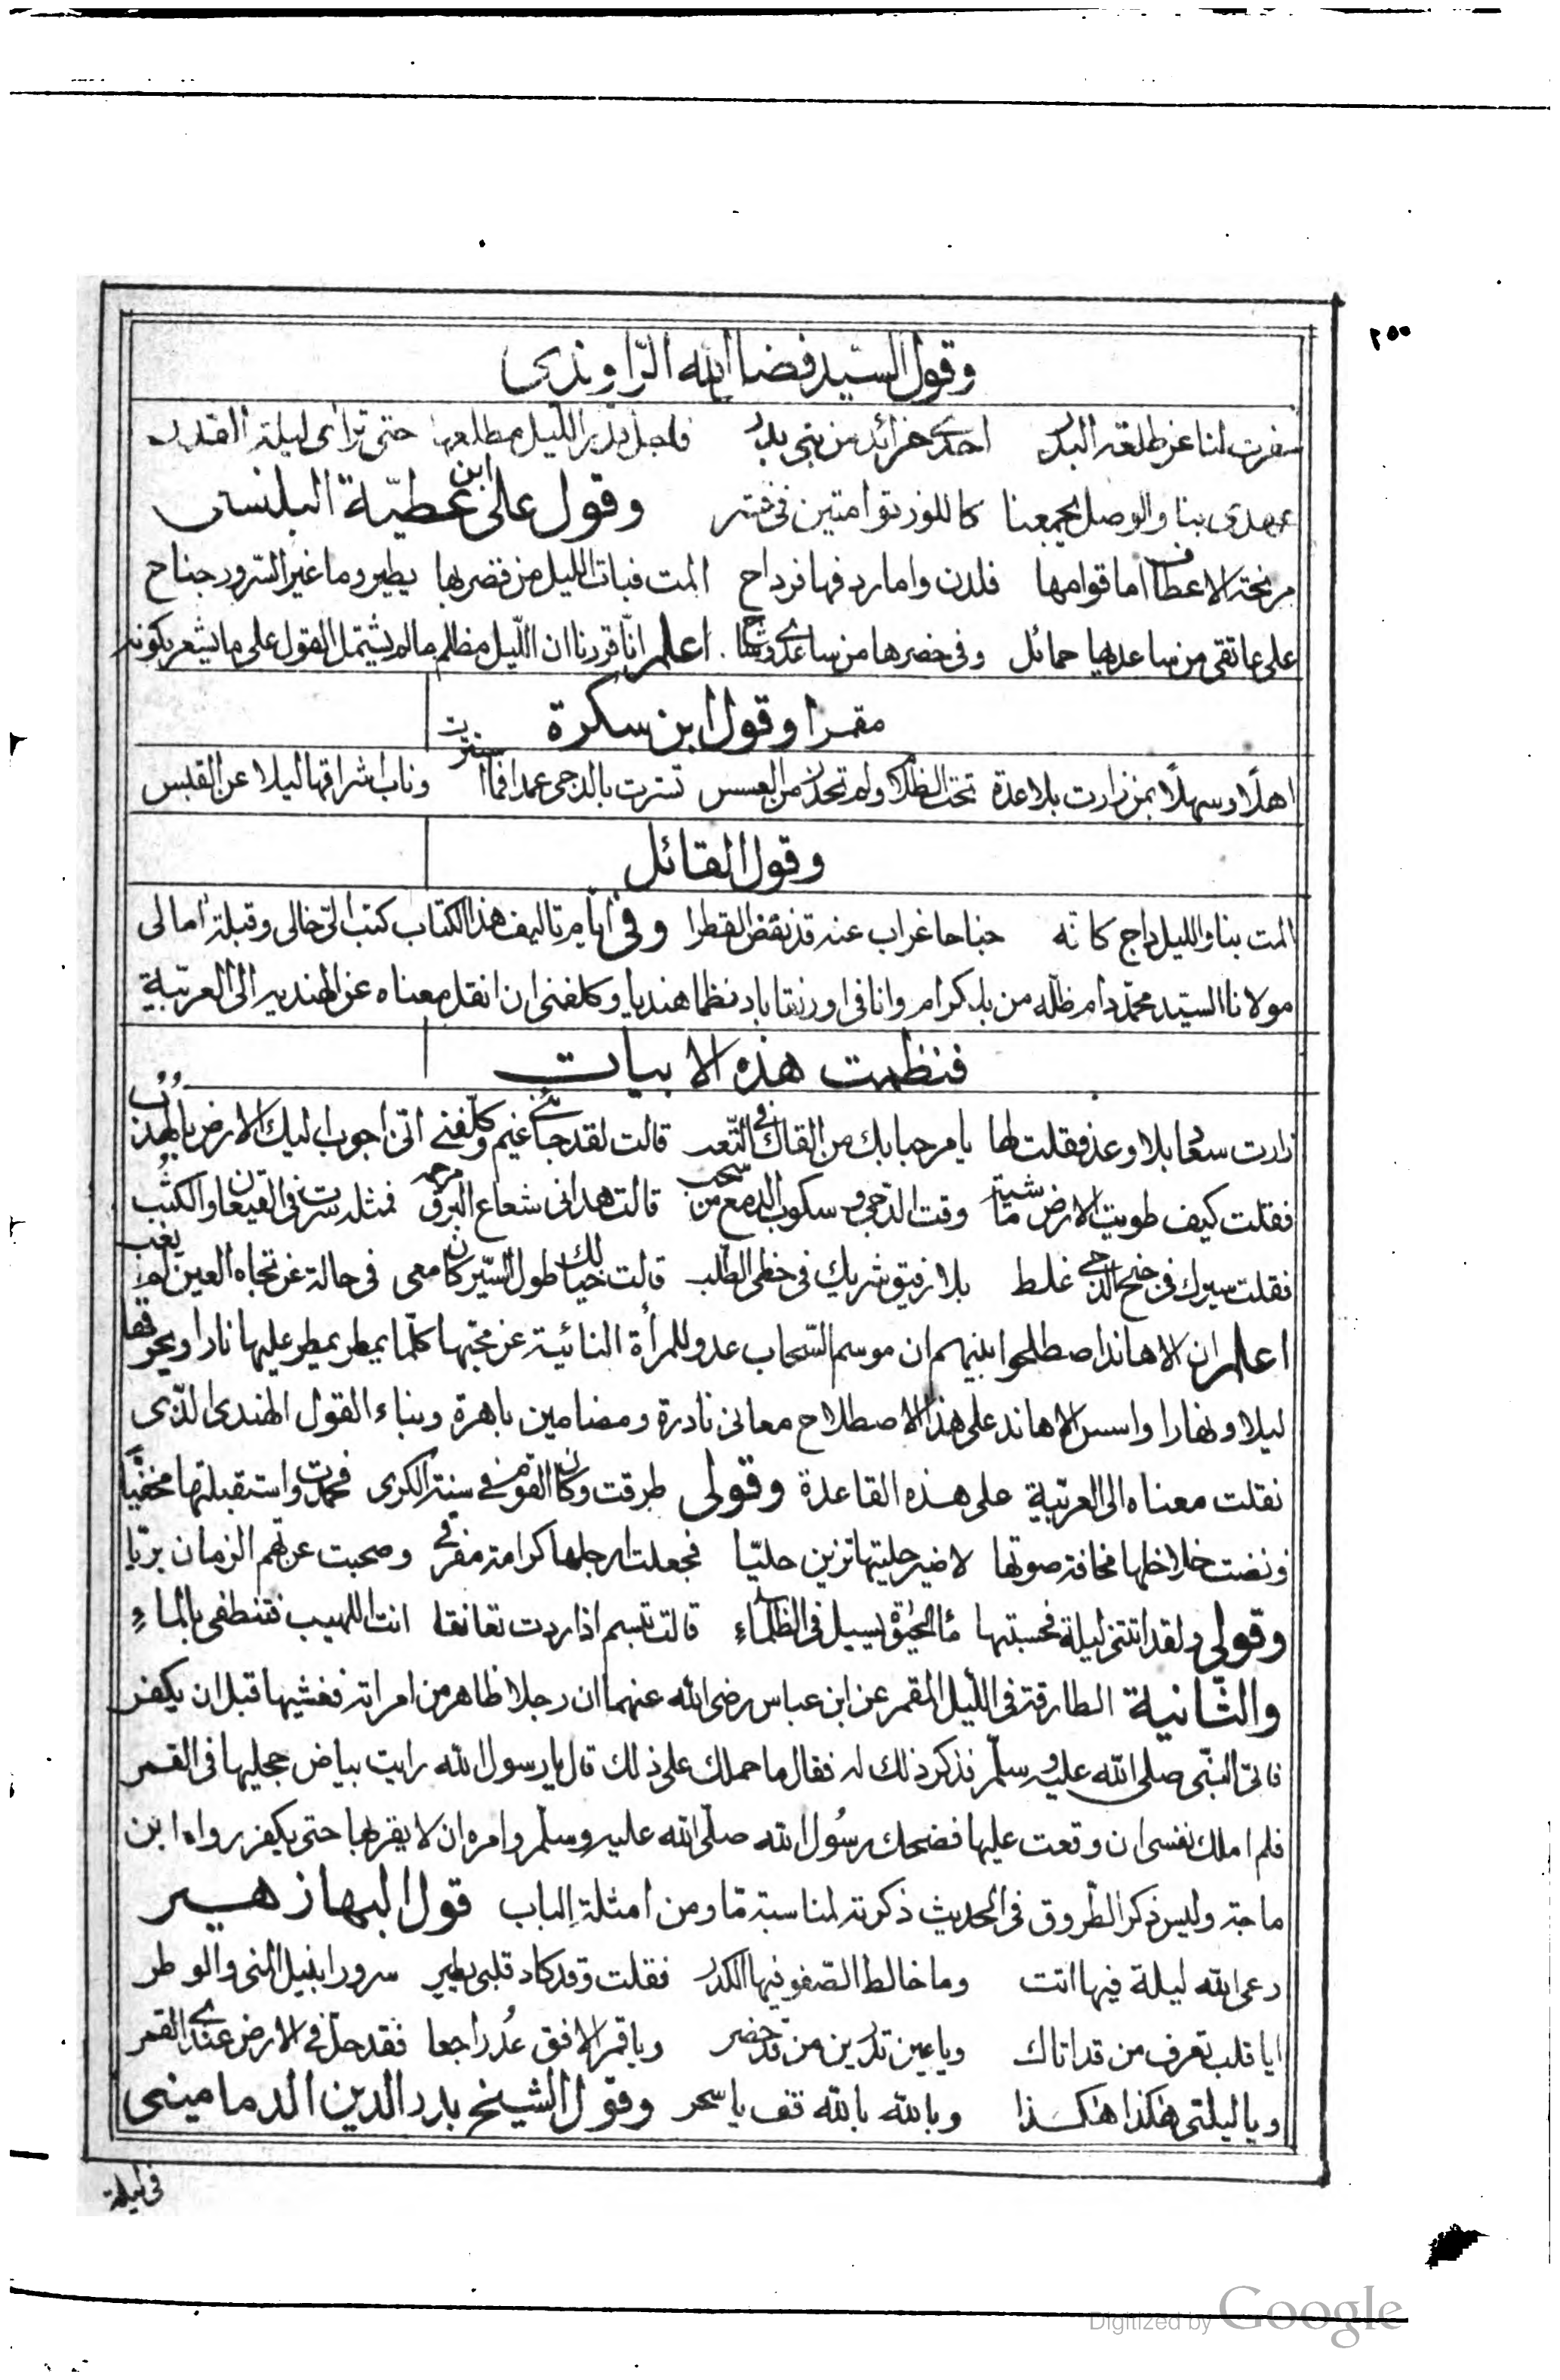 ٢٥٥
وقول السيد فضل الله الراوندى
سفرت لنا عن طلعة البدر احدى خرائد من بنى بدر فاجل بدر الليل مطلعها حتى تراى ليلة القدر
عهدى بنا والوصل يجمعنا كاللوز توامتين فى قشر وقول على ابن عطيّة البلنسى
مرنحة الاعطاف اما قوامها فلدن واما ردفها فرداح المت فبات الليل من قصر بها يطير وما غير السّرور جناح
على عاتقى من ساعديها حمائل وفى خصرها من ساعدى وشاح . اعلم انّا قررنا ان اللّيل مظلم ما لم يشتمل القول على ما يشعر بكونه
مقمرا وقول ابن سكرة
اهلًا وسهلًا بمن زارت بلا عدة تحت الظلام ولم تحذر من العسس تسترت بالدجى عمدا فما استترت وناب اشراقها ليلا عن القبس
وقول القائل
المت بنا والليل داج كانه جناحا غراب عنه قد نفض القطرا وفى ايام تاليف هذا الكتاب كتب الىّ خالى وقبلة امالى
مولانا السيّد محمّد دام ظلّه من بلكرام وانا فى اورنقاباد نظما هنديا وكلفنى ان انقل معناه عن الهندية الى العربيّة
فنظمت هذه الابيات
زارت سعا بلا وعد فقلت لها يا مرحبا بك من القاك فى التّعب قالت لقد جاءنى غيم وكلّفنى انّى اجوب اليك الارض بالهذب
فقلت كيف طويت الارض ماشية وقت الدّجى وسكوب الدمع من سحب قالت هدانى شعاع البرق مرحمة فمثله سرت فى القيعان والكثب
فقلت سيرك فى جنح الدّجى غلط بلا رفيق شريك فى خطى الطّلب قالت خيالك طول السّير كان معى فى حالة عن تجاه العين لم يغب
اعلم ان الاهاند اصطلحوا بينهم ان موسم السّحاب عدو للمرأة النائية عن محبّها كلّما يمطر يمطر عليها نارا ويحرقها
ليلا ونهارا واسس الاهاند على هذا الاصطلاح معانى نادرة ومضامين باهرة وبناء القول الهندى الّذى
نقلت معناه الى العربيّة على هذه القاعدة وقولى طرقت وكان القوم فى سنة الكرى فحمدت واستقبلتها مخفيًّا
ونضت خلاخلها مخافة صوتها لا ضير حليتها تزين حليّا فجعلت ارجلها كرامة مفرقى وصحبت عن رغم الزمان بريّا
وقولى ولقد اتتنى ليلة فحسبتها ماء الحيٰوة يسيل فى الظلماءِ قالت تبسم اذا ردت تعانقا انت اللهيب فتنطفى بالماءِ
والثّانية الطارقة فى الليل المقمر عن ابن عباس رضى الله عنهما ان رجلا ظاهر من امراته فغشيها قبل ان يكفر
فاتى النبّى صلى الله عليه وسلّم فذكر ذلك له فقال ما حملك على ذلك قال يا رسول الله رايت بياض حجليها فى القمر
فلم املك نفسى ان وقعت عليها فضحك رسُول الله صلّى الله عليه وسلّم وامره ان لا يقربها حتى يكفر رواه ابن
ماجة وليس ذكر الطّروق فى الحديث ذكرته لمناسبة مّا ومن امثلة الباب قول البها زهير
رعى الله ليلة فيها اتت وما خالط الصّفو فيها الكدر فقلت وقد كاد قلبى يطير سرورا بنيل المنى والوطر
ايا قلب تعرف من قد اتاك ويا عين تدرين من قد حضر ويا قمر الافق عُد راجعا فقد حلّ فى الارض عندى القمر
ويا ليلتى هٰكذا هٰكذا وبالله بالله قف يا سحر وقول الشيخ بدر الدين الدمامينى
فى ليلة
Digitized by Google